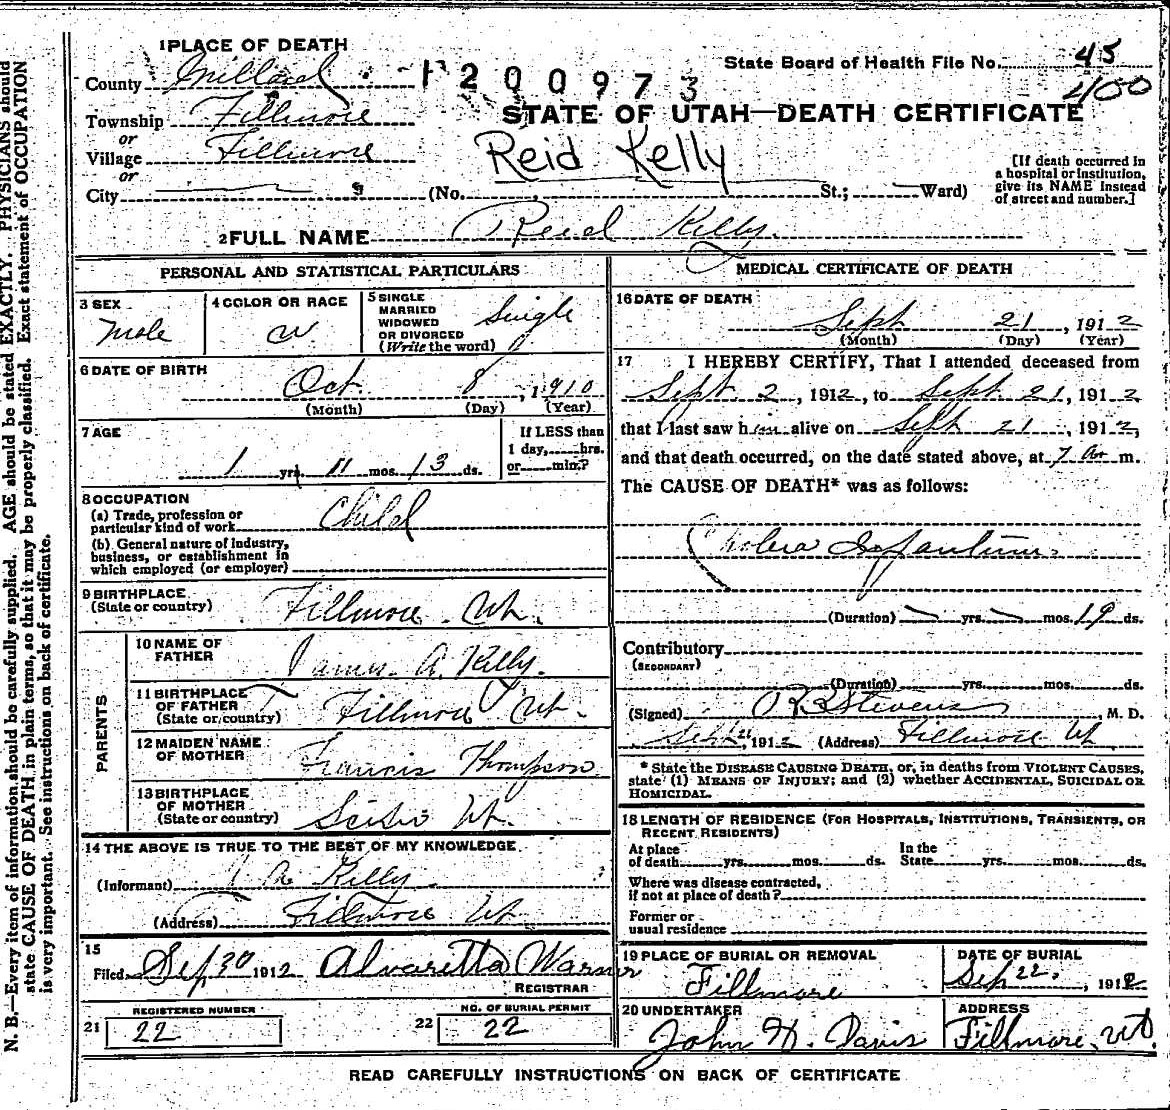 1 PLACE OF DEATH
County Millard
1200973
State Board of Health File No. 45
400
Township Fillmore
or
Village Fillmore
or
City
STATE OF UTAH—DEATH CERTIFICATE
Reid Kelly
(No. St.; Ward)
[If death occurred in
a hospital or institution,
give its NAME instead
of street and number.]
2 FULL NAME Reid Kelly.
PERSONAL AND STATISTICAL PARTICULARS
3 SEX
Male
4 COLOR OR RACE
W
5 SINGLE
MARRIED
WIDOWED
OR DIVORCED
(Write the word)
Single
6 DATE OF BIRTH
Oct. 8, 1910
(Month) (Day) (Year)
7 AGE
1 yrs. 11 mos. 13 ds.
If LESS than
1 day, hrs.
or min.?
8 OCCUPATION
(a) Trade, profession or
particular kind of work Child
(b) General nature of industry,
business, or establishment in
which employed (or employer)
9 BIRTHPLACE
(State or country)
Fillmore Ut.
PARENTS
10 NAME OF
FATHER
James A. Kelly.
11 BIRTHPLACE
OF FATHER
(State or country)
Fillmore Ut.
12 MAIDEN NAME
OF MOTHER
Francis Thompson
13 BIRTHPLACE
OF MOTHER
(State or country)
Scipio Ut.
14 THE ABOVE IS TRUE TO THE BEST OF MY KNOWLEDGE.
(Informant) J A Kelly.
(Address) Fillmore Ut
15
Filed Sep 30 1912 Alvaretta Warner
REGISTRAR
21 REGISTERED NUMBER
22
22 NO. OF BURIAL PERMIT
22
MEDICAL CERTIFICATE OF DEATH
16 DATE OF DEATH
Sept 21, 1912
(Month) (Day) (Year)
17 I HEREBY CERTIFY, That I attended deceased from
Sept. 2, 1912, to Sept 21, 1912
that I last saw him alive on Sept 21, 1912,
and that death occurred, on the date stated above, at 7 a m.
The CAUSE OF DEATH* was as follows:
Cholera Infantum.
(Duration) yrs. mos. 19 ds.
Contributory
(SECONDARY)
(Duration) yrs. mos. ds.
(Signed) Stevens M. D.
Sept 21, 1912 (Address) Fillmore Ut
* State the DISEASE CAUSING DEATH, or, in deaths from VIOLENT CAUSES,
state (1) MEANS OF INJURY; and (2) whether ACCIDENTAL, SUICIDAL OR
HOMICIDAL.
18 LENGTH OF RESIDENCE (FOR HOSPITALS, INSTITUTIONS, TRANSIENTS, OR
RECENT RESIDENTS)
At place
of death yrs. mos. ds.
In the
State yrs. mos. ds.
Where was disease contracted,
if not at place of death?
Former or
usual residence
19 PLACE OF BURIAL OR REMOVAL
Fillmore
DATE OF BURIAL
Sep 22, 1912
20 UNDERTAKER
John H. Davis
ADDRESS
Fillmore, Ut.
READ CAREFULLY INSTRUCTIONS ON BACK OF CERTIFICATE
N. B.—Every item of information should be carefully supplied. AGE should be stated EXACTLY. PHYSICIANS should
state CAUSE OF DEATH in plain terms, so that it may be properly classified. Exact statement of OCCUPATION
is very important. See instructions on back of certificate.